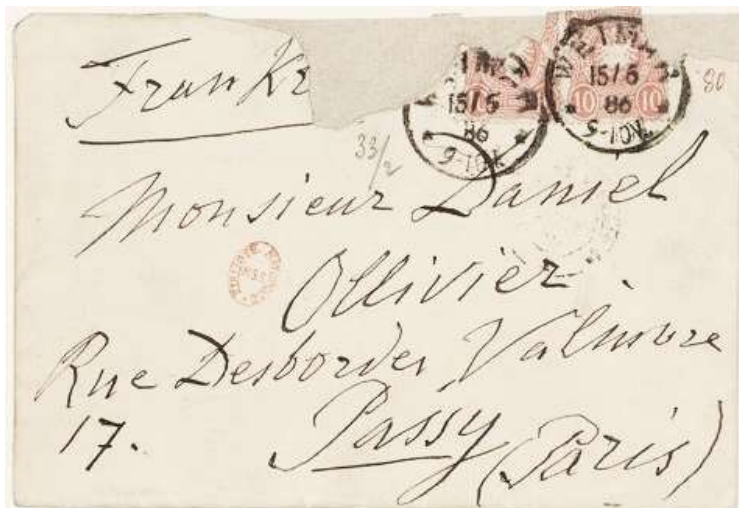 Frankr
WEIMAR
15/5
86
*5-10N*
10
WEIMAR
15/5
86
*5-10N*
10 10
80
33/2
Monsieur Daniel
Ollivier.
Rue Desbordes Valmore
17. Passy
(Paris)